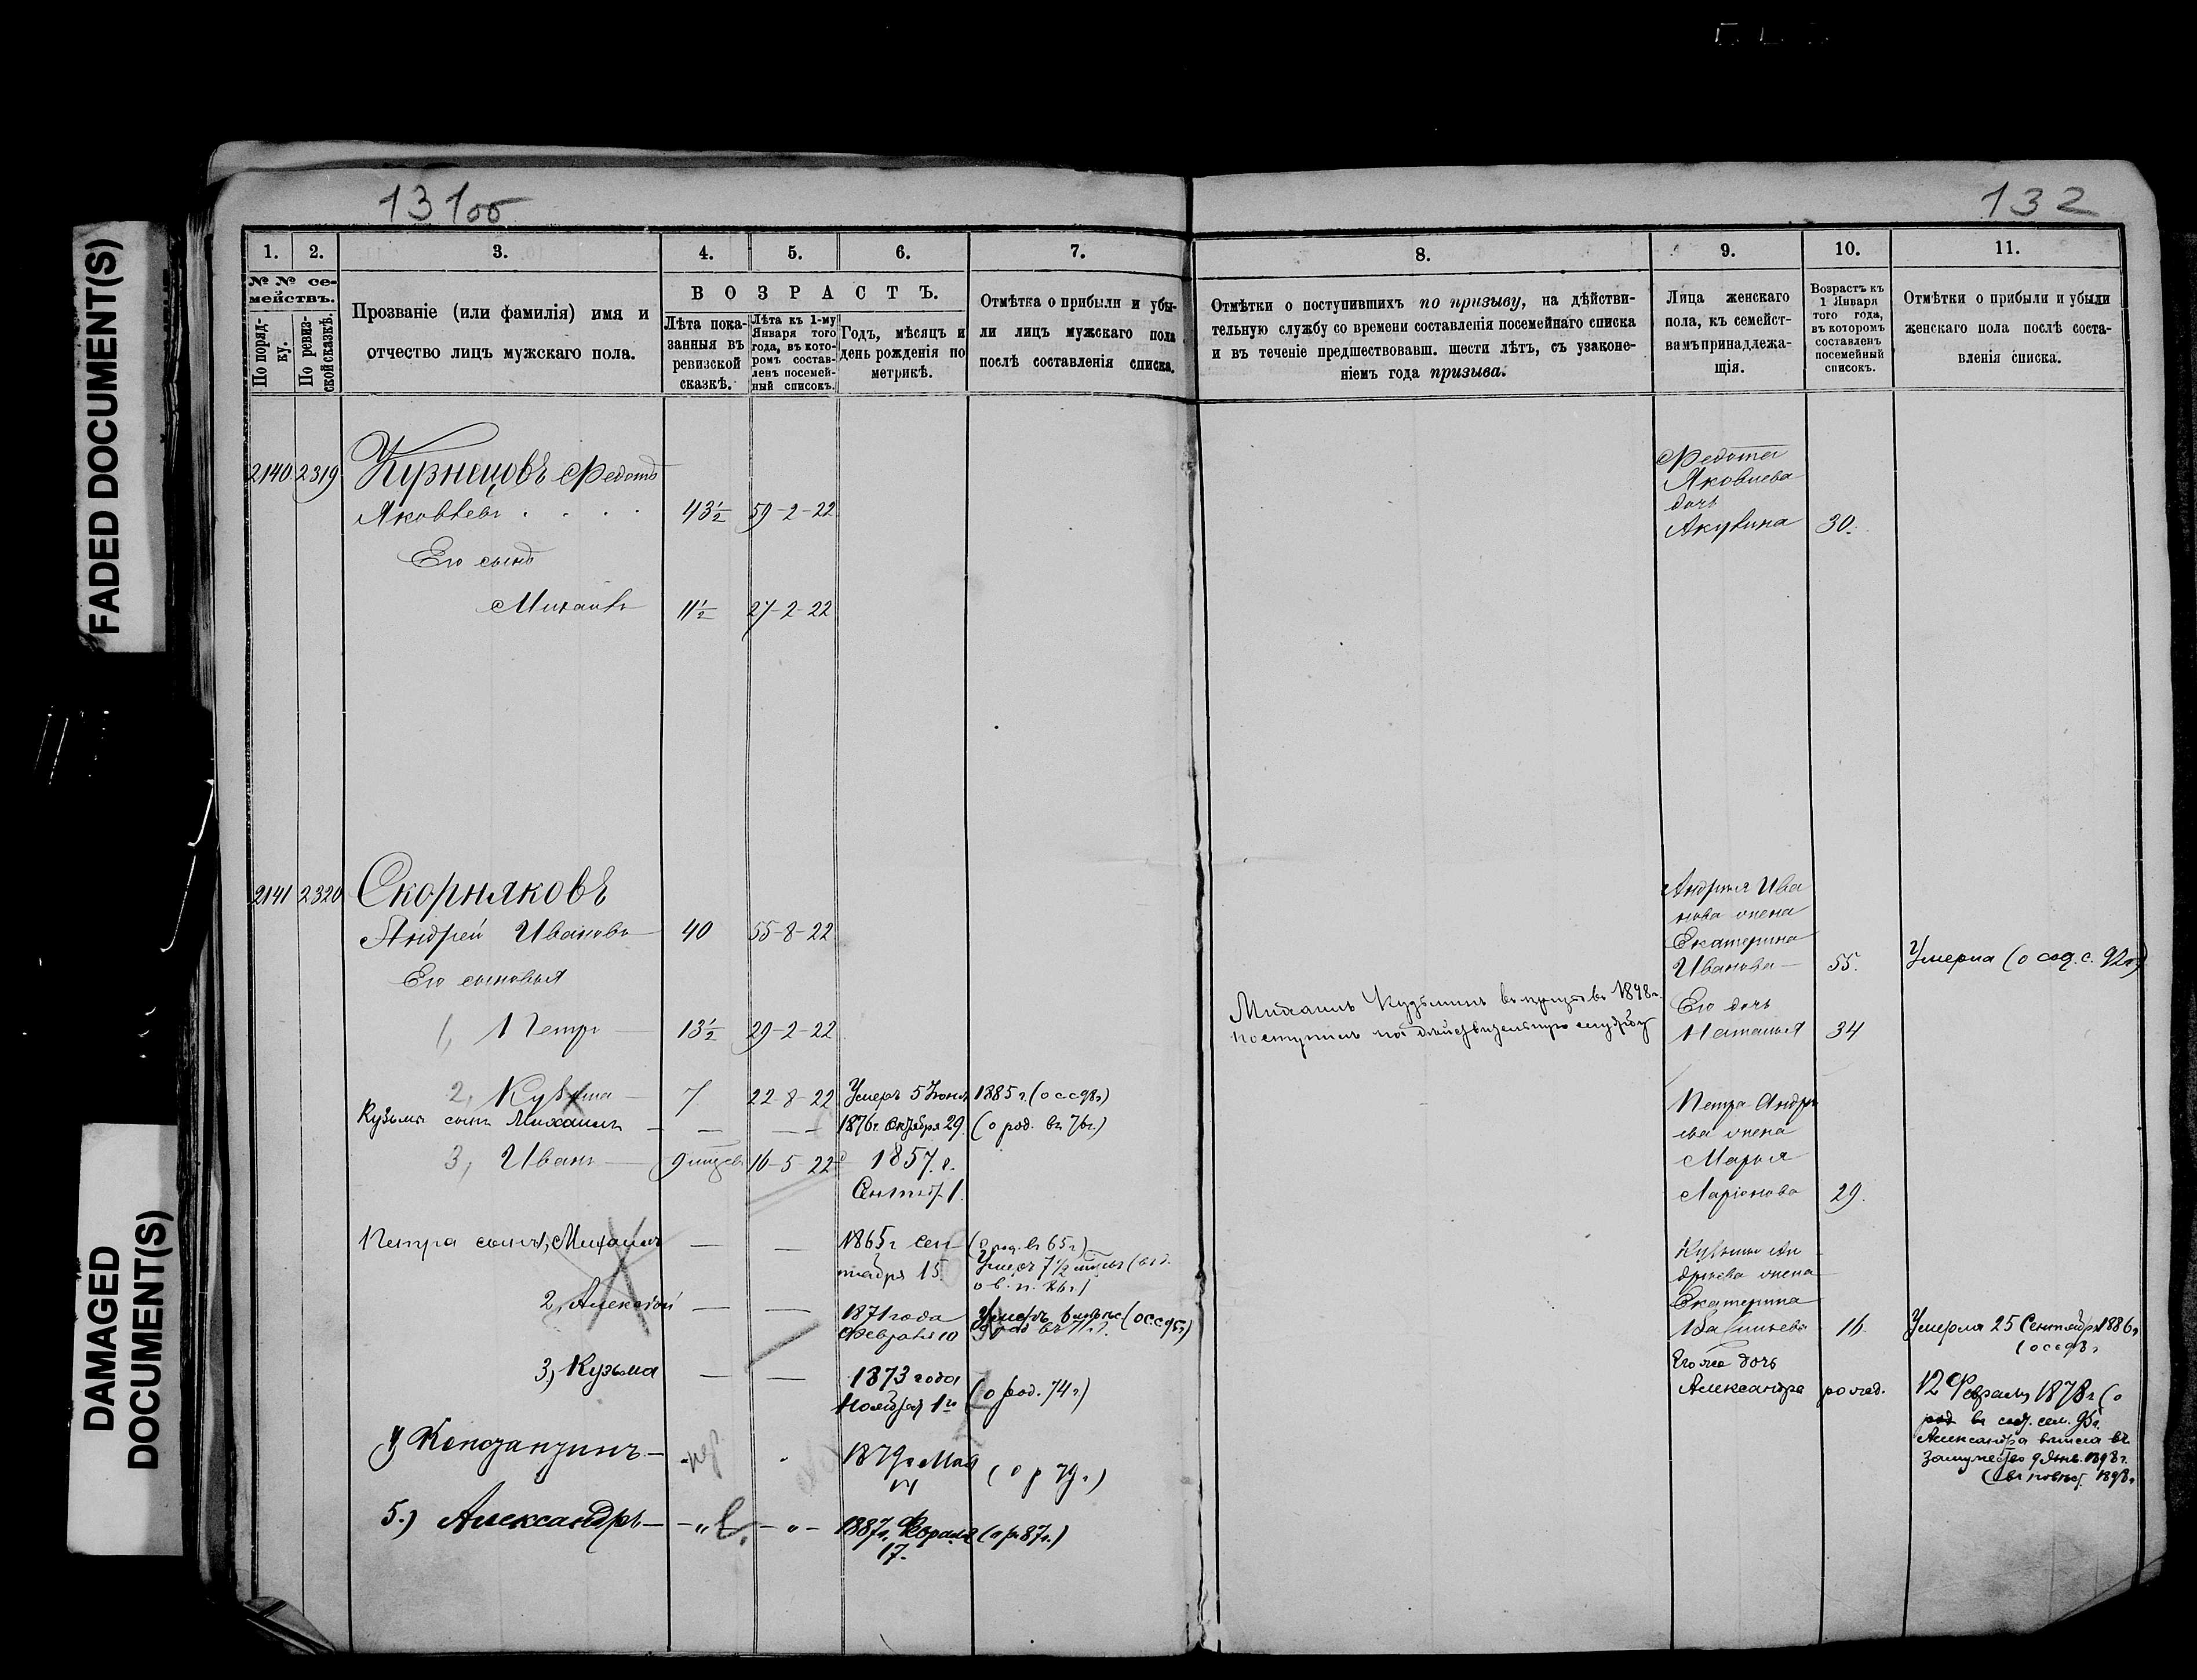 FADED DOCUMENT(S)
DAMAGED
DOCUMENT(S)
131об
132
1.
2.
3.
4.
5.
6.
7.
8.
9.
10.
11.
№ № се-
мействъ.
По поряд-
ку.
По ревиз-
ской сказкѣ.
Прозваніе (или фамилія) имя и
отчество лицъ мужскаго пола.
ВОЗРАСТЪ.
Лѣта пока-
занныя въ
ревизской
сказкѣ.
Лѣта къ 1-му
Января того
года, въ кото-
ромъ состав-
ленъ посемей-
ный списокъ.
Годъ, мѣсяцъ и
день рожденія по
метрикѣ.
Отмѣтка о прибыли и убы-
ли лицъ мужскаго пола
послѣ составленія списка.
Отмѣтки о поступившихъ по призыву, на дѣйстви-
тельную службу со времени составленія посемейнаго списка
и въ теченіе предшествовавш. шести лѣтъ, съ узаконе-
ніемъ года призыва.
Лица женскаго
пола, къ семейст-
вамъ принадлежа-
щія.
Возрастъ къ
1 Января
того года,
въ которомъ
составленъ
посемейный
списокъ.
Отмѣтки о прибыли и убыли
женскаго пола послѣ соста-
вленія списка.
2140 2319 Кузнецовъ Федотъ
Яковлевъ . . . . 43½ 59-2-22
Его сынъ
Михаилъ 11½ 27-2-22
Федота
Яковлева
дочь
Акулина 30.
2141 2320 Скорняковъ
Андрей Ивановъ 40 55-8-22
Его сыновья
1, Петръ 13½ 29-2-22
2, Кузьма 7 22-8-22 Умеръ 5 Іюня 1885 г. (о с с 98 г)
Кузьма сынъ Михаилъ — — — 1876 г. Октября 29. (о род. въ 76 г.)
3, Иванъ 9 мцев 16-5-22 1857. г.
Сентяб. 1.
Петра сынъ 1, Михаилъ — — 1865 г. Сен
тября 15. (о род. въ 65 г.)
Умеръ 7½
2, Алексѣй — — 1871 года
Февраля 10 Умеръ (о с с 95 г)
3, Кузьма — — 1873 года
Ноября 1го (о род. 74 г.)
4, Константинъ — 1879 г. Мая
(о р 79 г.)
5.) Александръ — 1887 г. Февраля (о р. 87 г.)
17.
Михаилъ Кузьминъ въ призывѣ 1898 г.
поступилъ на дѣйствительную службу
Андрея Ива
нова жена
Екатерина
Иванова 55. Умерла (о сод. с. 92 г)
Его дочь
Наталья 34
Петра Андре
ева жена
Марья
Ларіонова 29.
Кузьмы Ан
дреева жена
Екатерина
Васильева 16. Умерла 25 Сентября 1886 г.
(о с с 98 г
Его же дочь
Александра рожд. 12 Февраля 1878 г. (о
род въ сод. сем. 95 г.
Александра вышла въ
замужество 9 Янв. 1898 г.
1898 г.